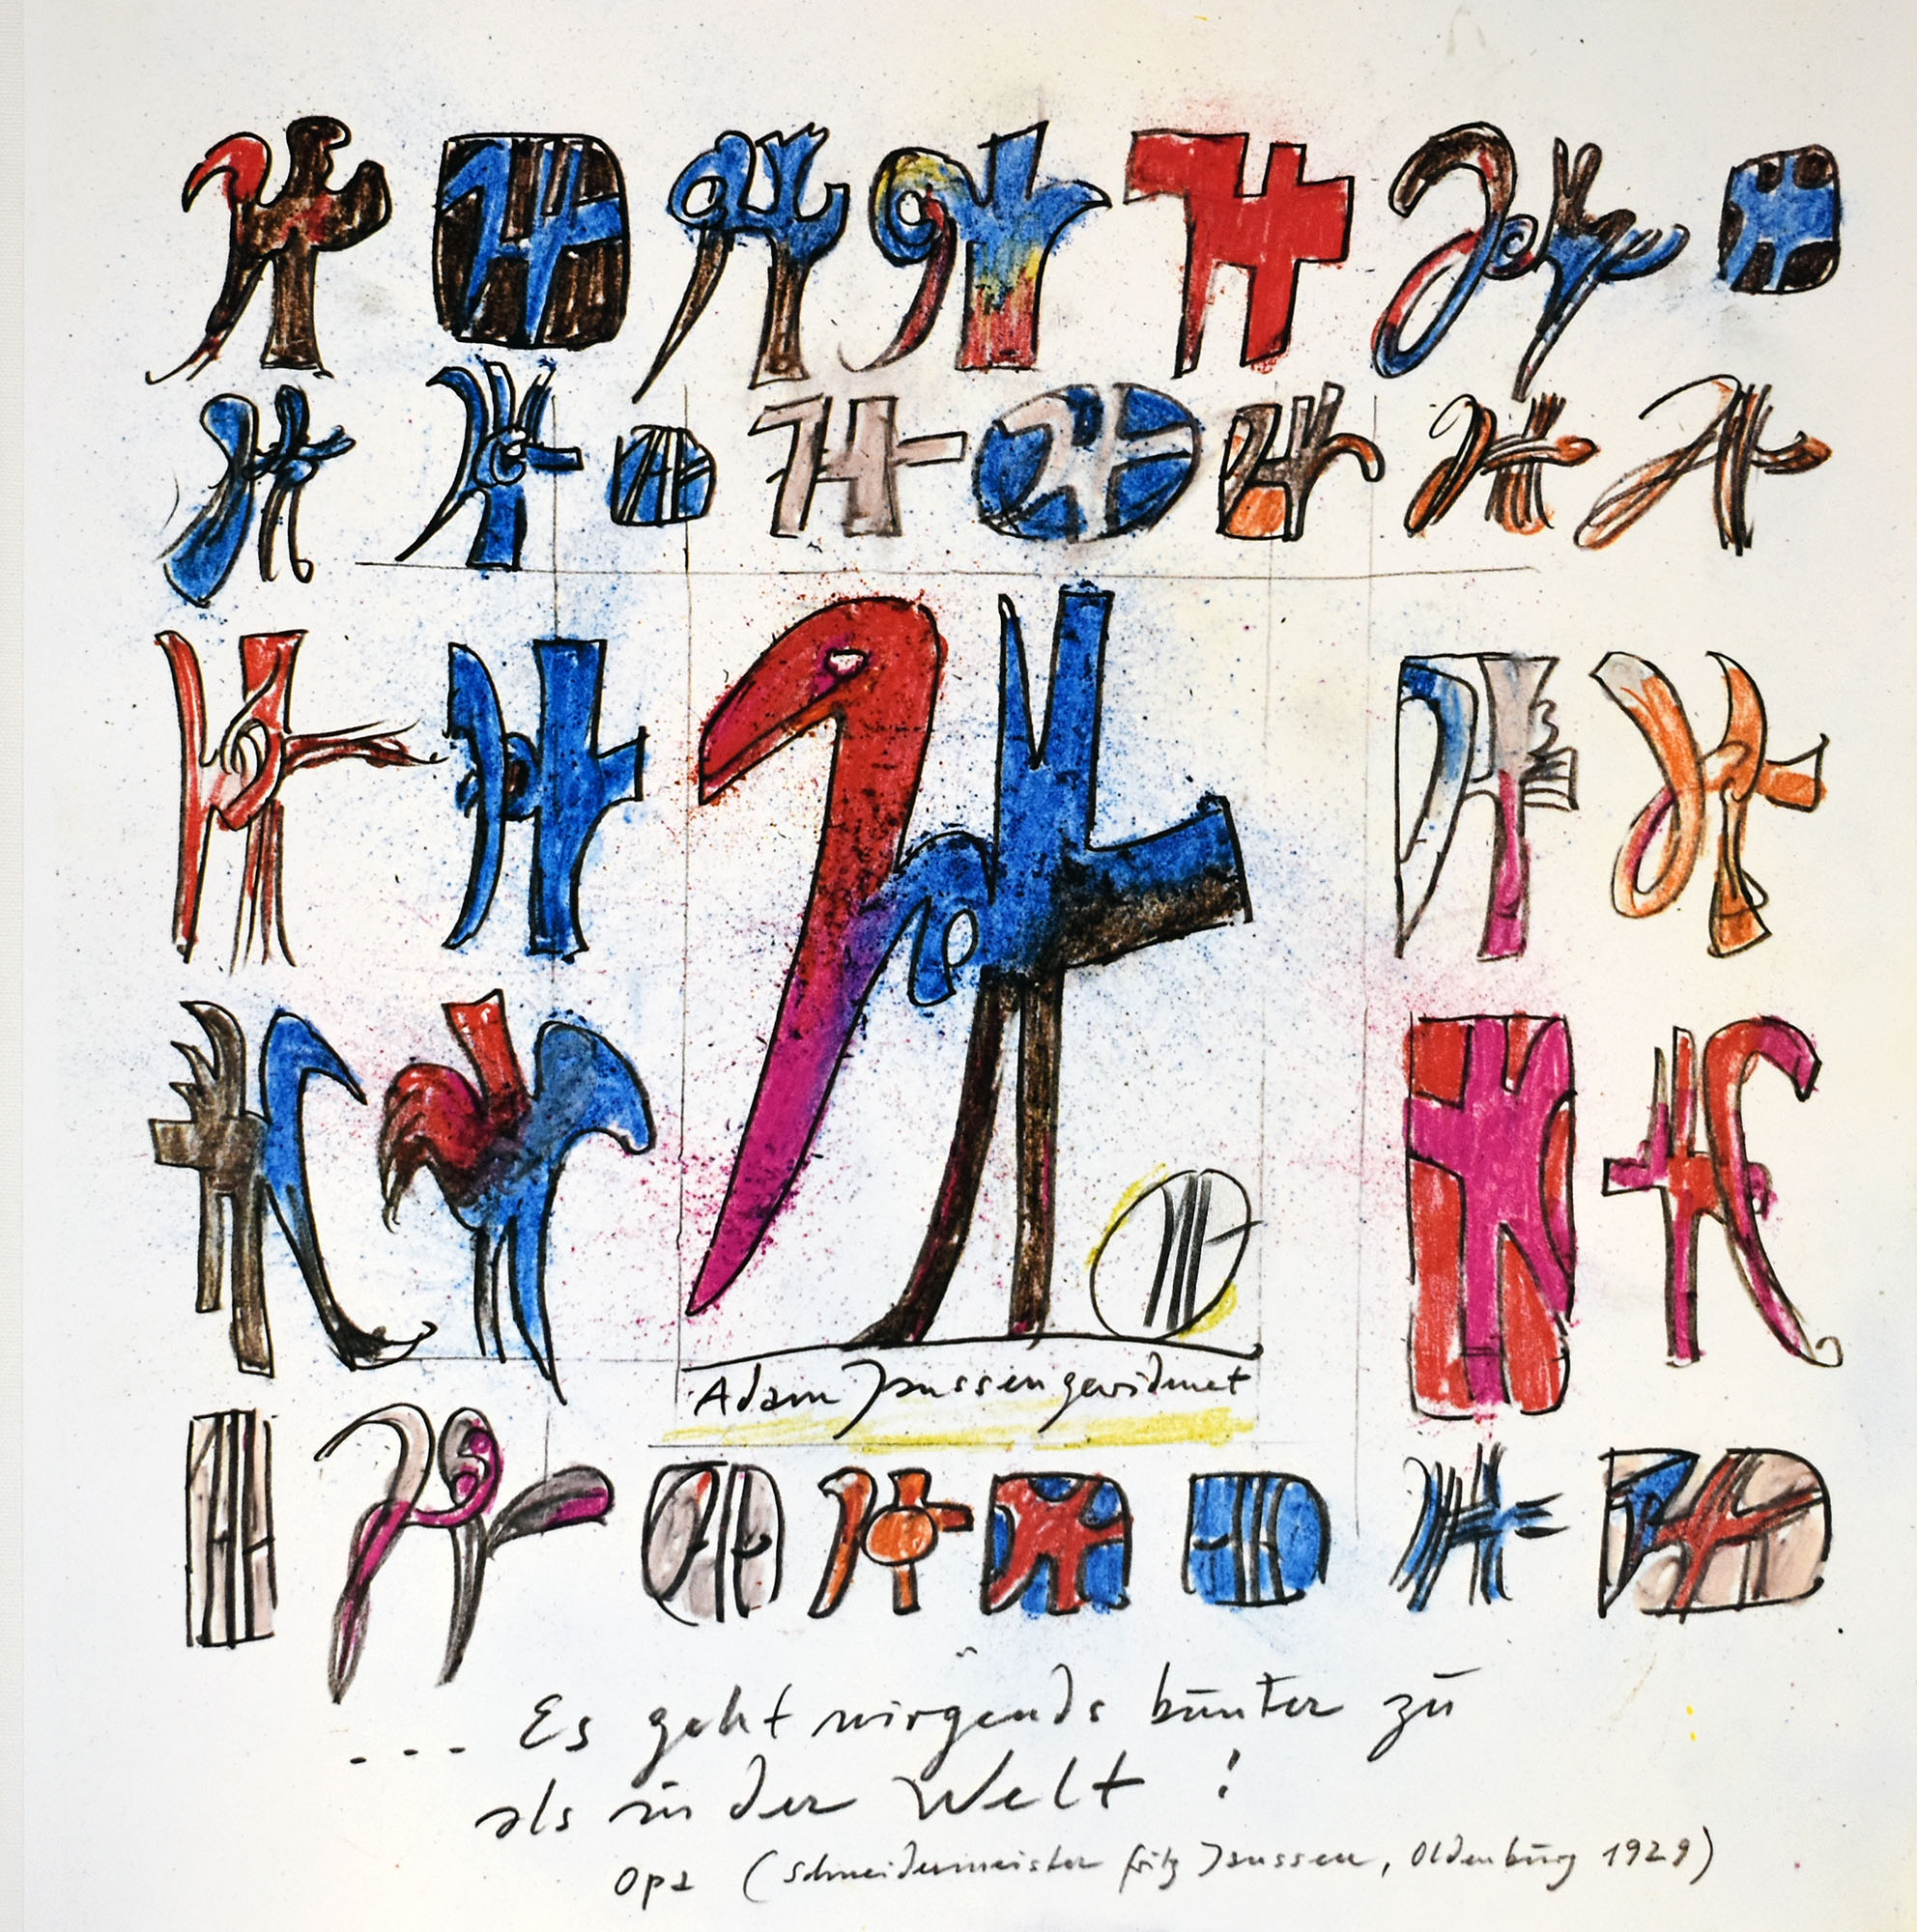 Adam Janssen gewidmet
... Es geht nirgends bunter zu
als in der Welt !
Opa (Schneidermeister Fritz Janssen, Oldenburg 1929)